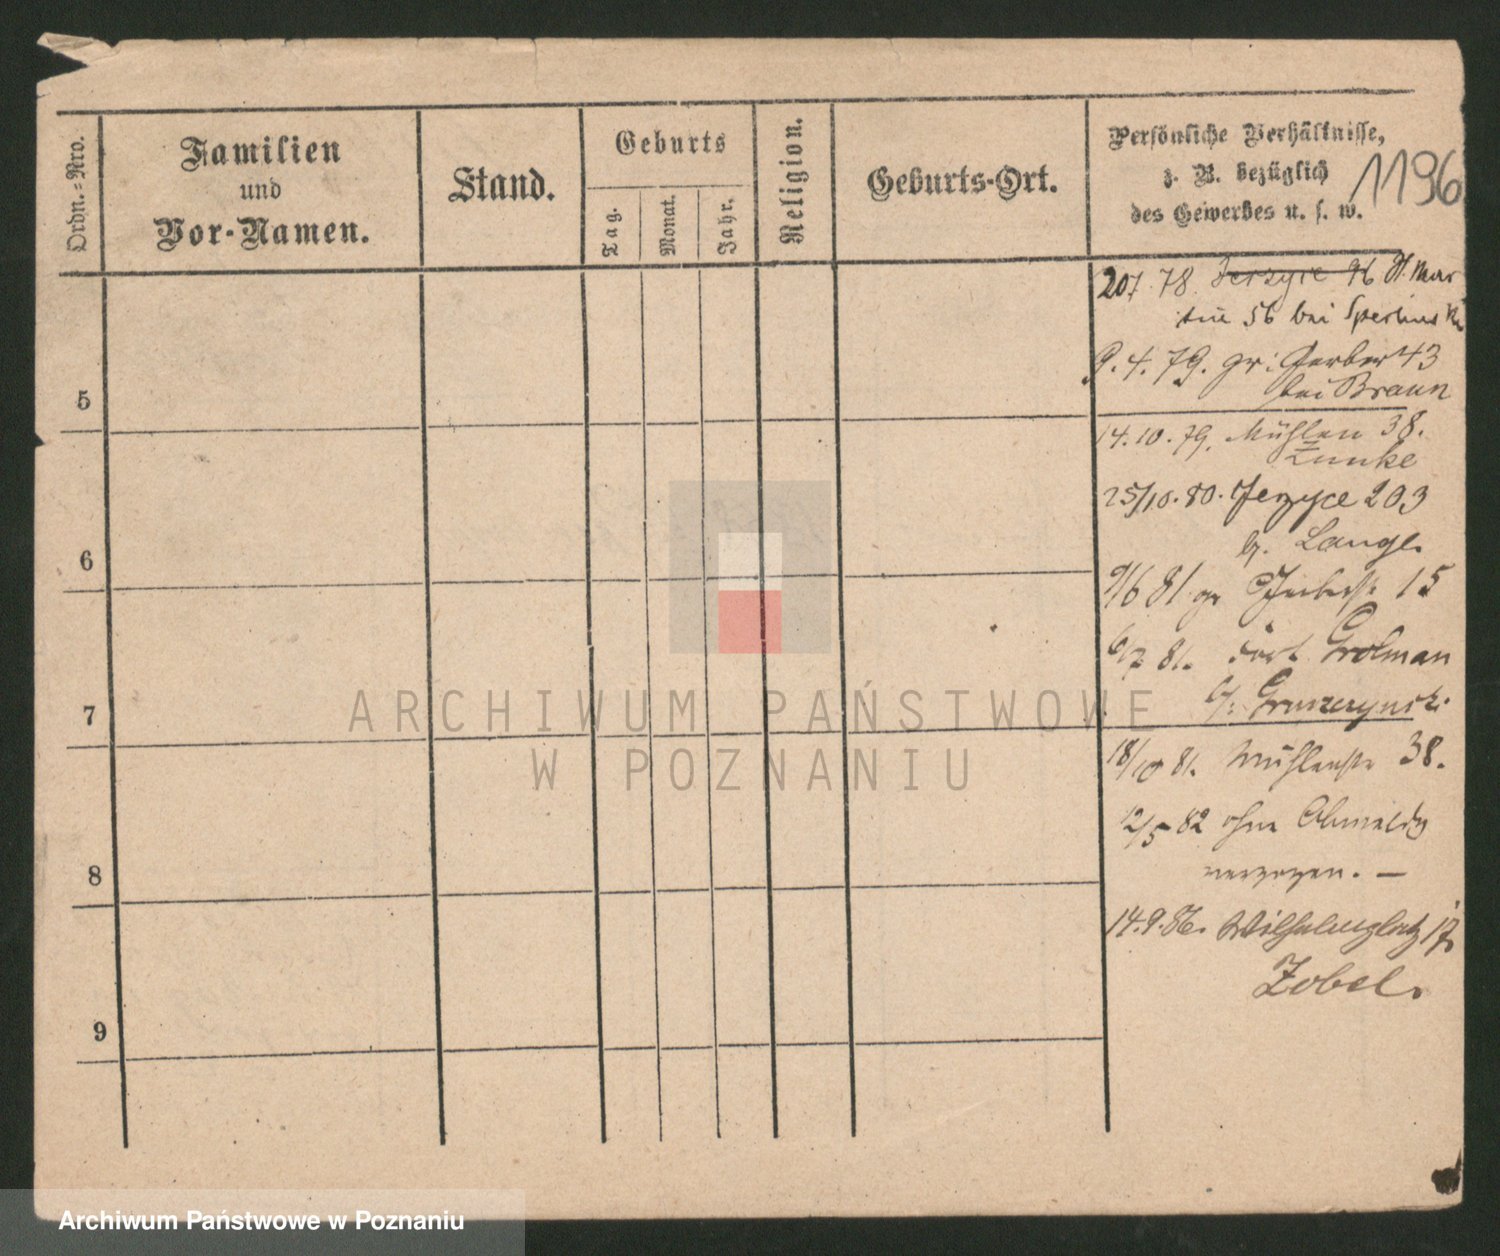 Ordn.=Nro.
Familien
und
Vor-Namen.
Stand.
Geburts
Tag.
Monat.
Jahr.
Religion.
Geburts-Ort.
Persönliche Verhältnisse,
z. B. bezüglich
des Gewerbes u. s. w.
1196
207.78. Jerzyce 96 St. Mar
tin 56 bei
9.4.79. gr. Gerber 43
bei Braun
5
14.10.79. Mühlen 38.
Zunke
25/10.80. Jerzyce 203
b. Lange.
6
9/6 81 gr Gerberstr 15
6/7 81. Fort Grolman
b/.
7
18/10 81. Mühlenstr 38.
12/5 82 ohne Abmeldg
verzogen. —
8
14.9.86. Wilhelmsplatz 17
Zobel.
9
ARCHIWUM PAŃSTWOWE
W POZNANIU
Archiwum Państwowe w Poznaniu